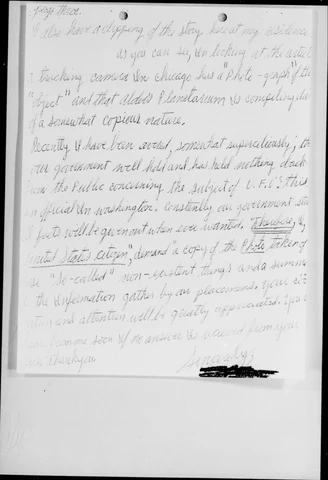 page three.
I also have a clipping of the story here at my residence
as you can see, in looking at the articl
a tracking camera in Chicago has a "Photo-graph" of the
"object" and that Alder's Planetarium is compiling da
of a somewhat copious nature.
Recently, I have been advised, somewhat superciliously; th
our government will hold and has held nothing back
from the Public concerning the subject of U.F.O.'s this
an official in Washington. Constantly our government sta
facts will be given out when ever wanted. Therefore, I,
United States citizen, "demand" a copy of the Photo taken of
se "So-called" non-existent things and a summa
the information gather by our placements. Your
and attention will be greatly appreciated.
soon
Thank you
Sincerely,